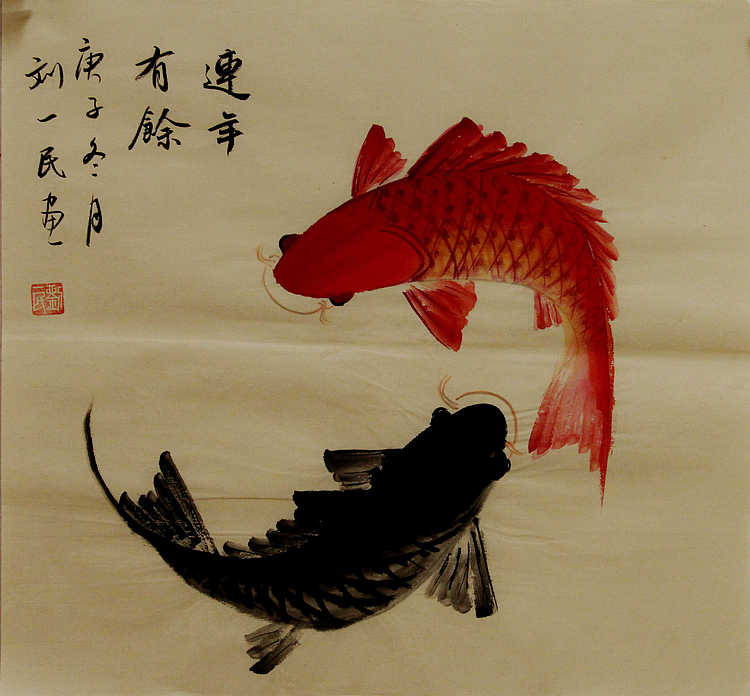 連年
有餘
庚子冬月
刘一民画